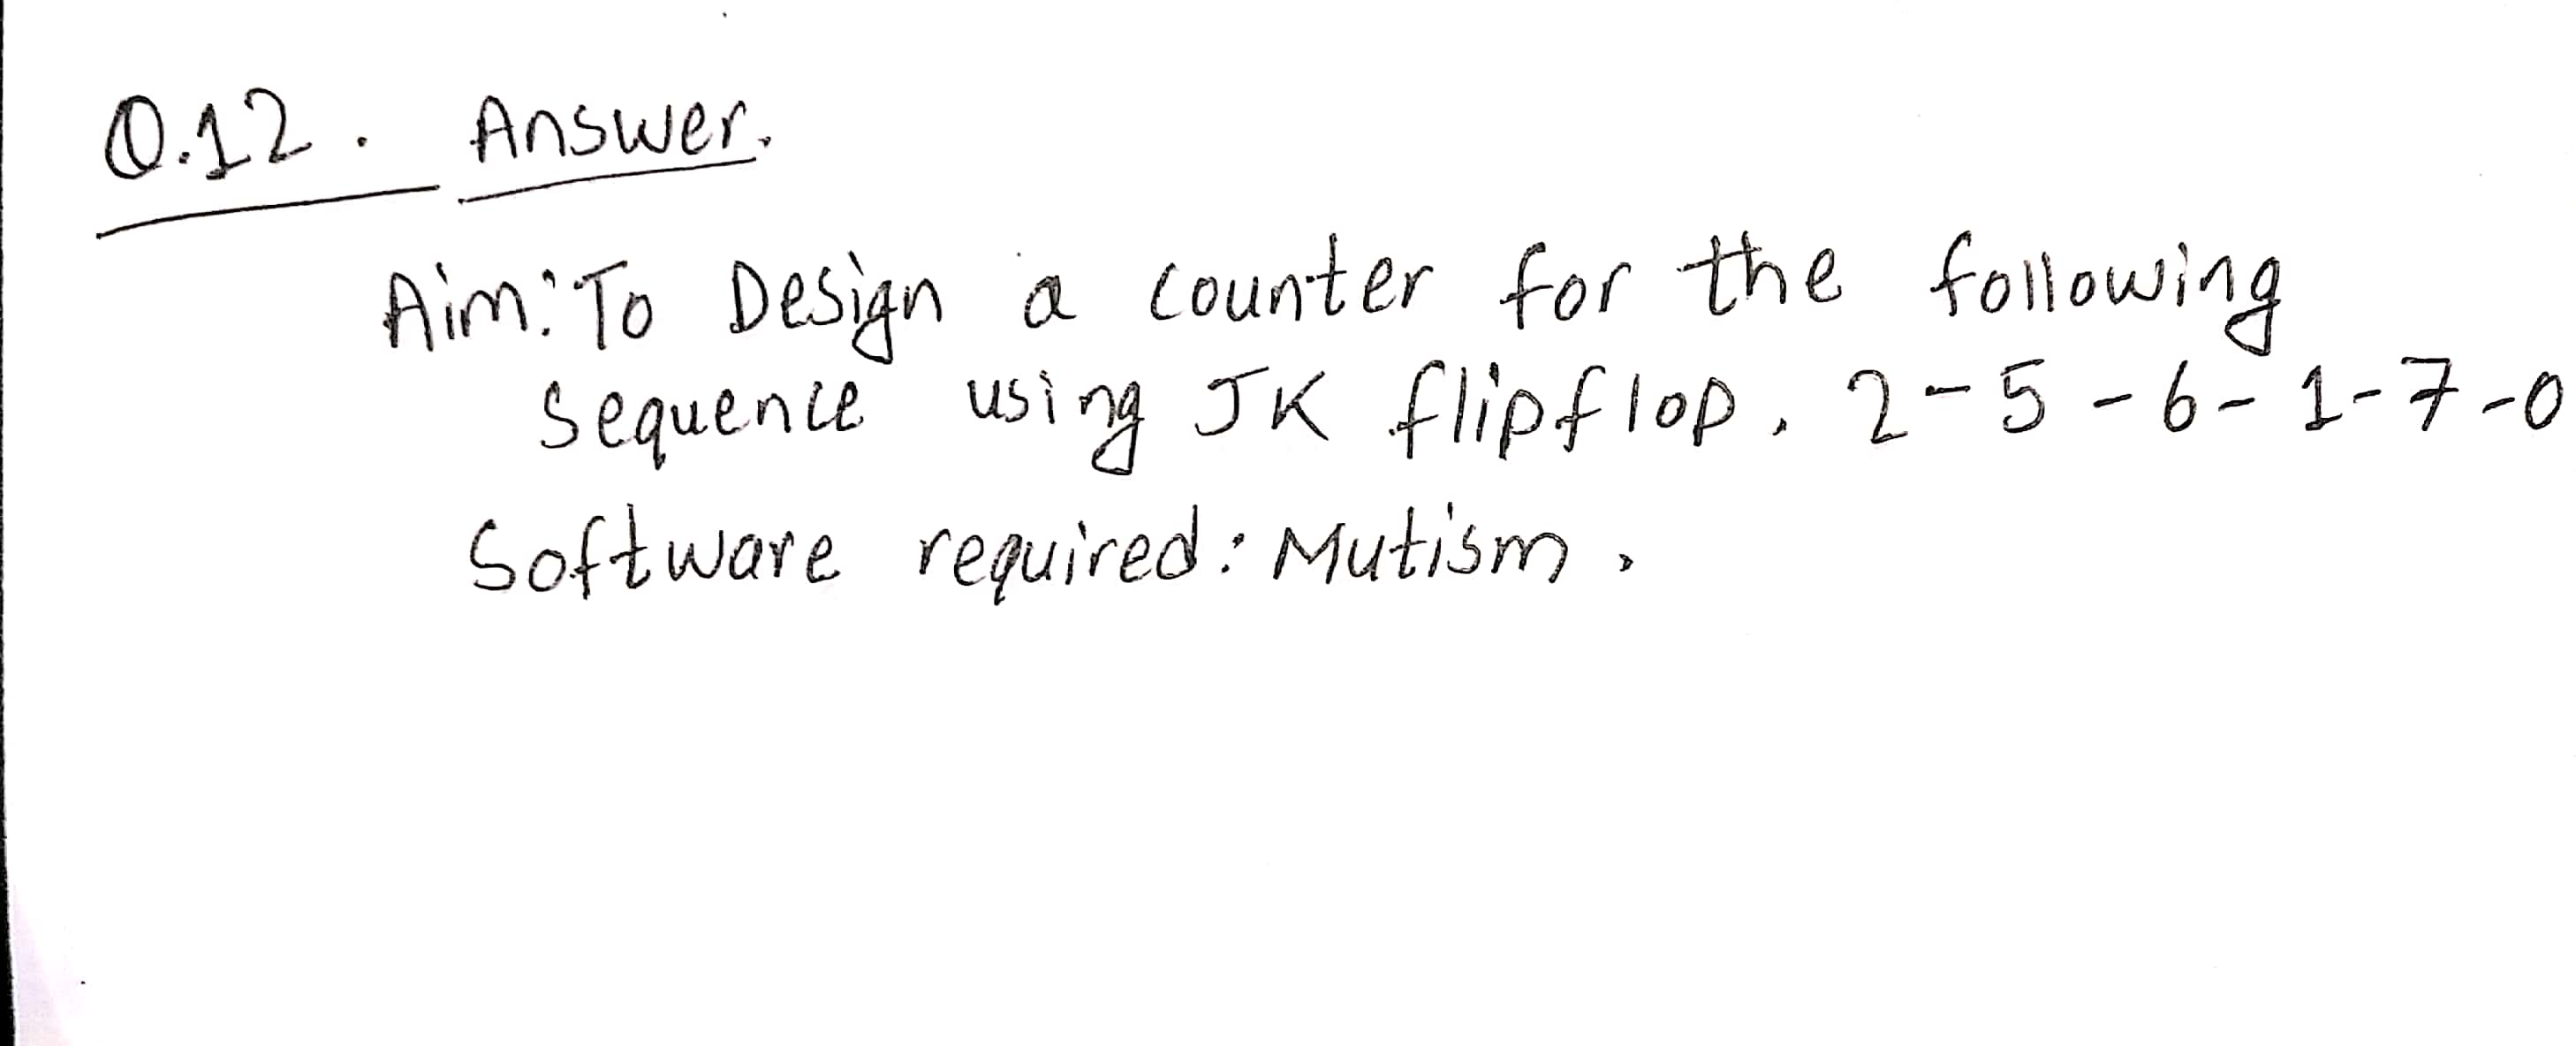 Q.12. Answer.
Aim: To Design a counter for the following
sequence using JK flipflop. 2-5-6-1-7-0
Software required: Mutism.